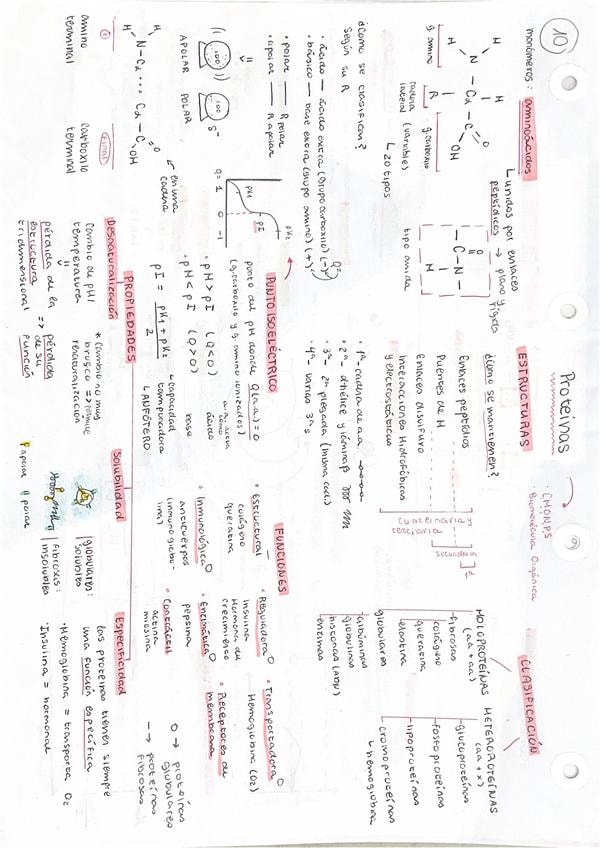 10
Proteínas
· CHONPS
Biomolécula Orgánica
monómeros: aminoácidos
H
H
N - Cα - C
O
OH
H
R
g. amino
cadena lateral (variable)
g. carboxilo
↳ 20 tipos
↳ unidos por enlaces
peptídicos → plano y
rígido
O
- C - N -
H
tipo amida
¿Como se clasifican?
según su R
· ácido — ácido extra (Grupo carboxilo) (-)
· básico — base extra (Grupo amino) (+)
· polar — R polar
· apolar — R apolar
APOLAR
POLAR
δ⁻
H
H
N - Cα ... Cα - C
O
OH
en una
cadena
amino
terminal
carboxilo
terminal
Final
ESTRUCTURAS
¿Como se mantienen?
Enlaces peptídicos
Puentes de H
Enlaces disulfuro
Interacciones Hidrofóbicas
y electrostáticas
1ª
secundaria
cuaternaria y
terciaria
· 1ª - cadena de a.a
· 2ª - αhélice y lámina β
· 3ª - 2ª plegada (misma cad.)
· 4ª - varias 3ªs
PUNTO ISOELÉCTRICO
punto del pH donde Q(a.a) = 0
(g. carboxilo y g. amino ionizados)
a.a actúa
como
· pH > pI (Q<0) ácido
· pH < pI (Q>0) base
pI = pK1 + pK2
2
↳ capacidad
amortiguadora
↳ ANFÓTERO
q = 1
0
-1
pK1
pI
pK2
CLASIFICACIÓN
HOLOPROTEÍNAS
(aa + aa)
- fibrosas
colágeno
queratina
elastina
globulares
- albúminas
globulinas
histonas (ADN)
enzimas
HETEROPROTEÍNAS
(aa + x)
- glucoproteínas
- fosfoproteínas
- lipoproteínas
- cromoproteínas
↳ hemoglobina
FUNCIONES
· Estructural
colágeno
queratina
· Inmunológica O
anticuerpos
(inmunoglobulinas)
· Reguladora O
insulina
Hormona de
crecimiento
· Enzimática O
pepsina
· Contráctil
actina
miosina
· Transportadora O
Hemoglobina (O2)
· Receptores de
membrana
O → proteínas
globulares
— → proteínas
fibrosas
PROPIEDADES
Desnaturalización
Cambio de pH /
temperatura
pérdida de la
estructura
tridimensional
=> pérdida
de su
función
* Cambio no muy
brusco => permite
renaturalización
Solubilidad
globulares:
solubles
fibrosas:
insolubles
apolar
polar
Especificidad
las proteínas tienen siempre
una función específica
· Hemoglobina = transporta O2
· Insulina = hormonal